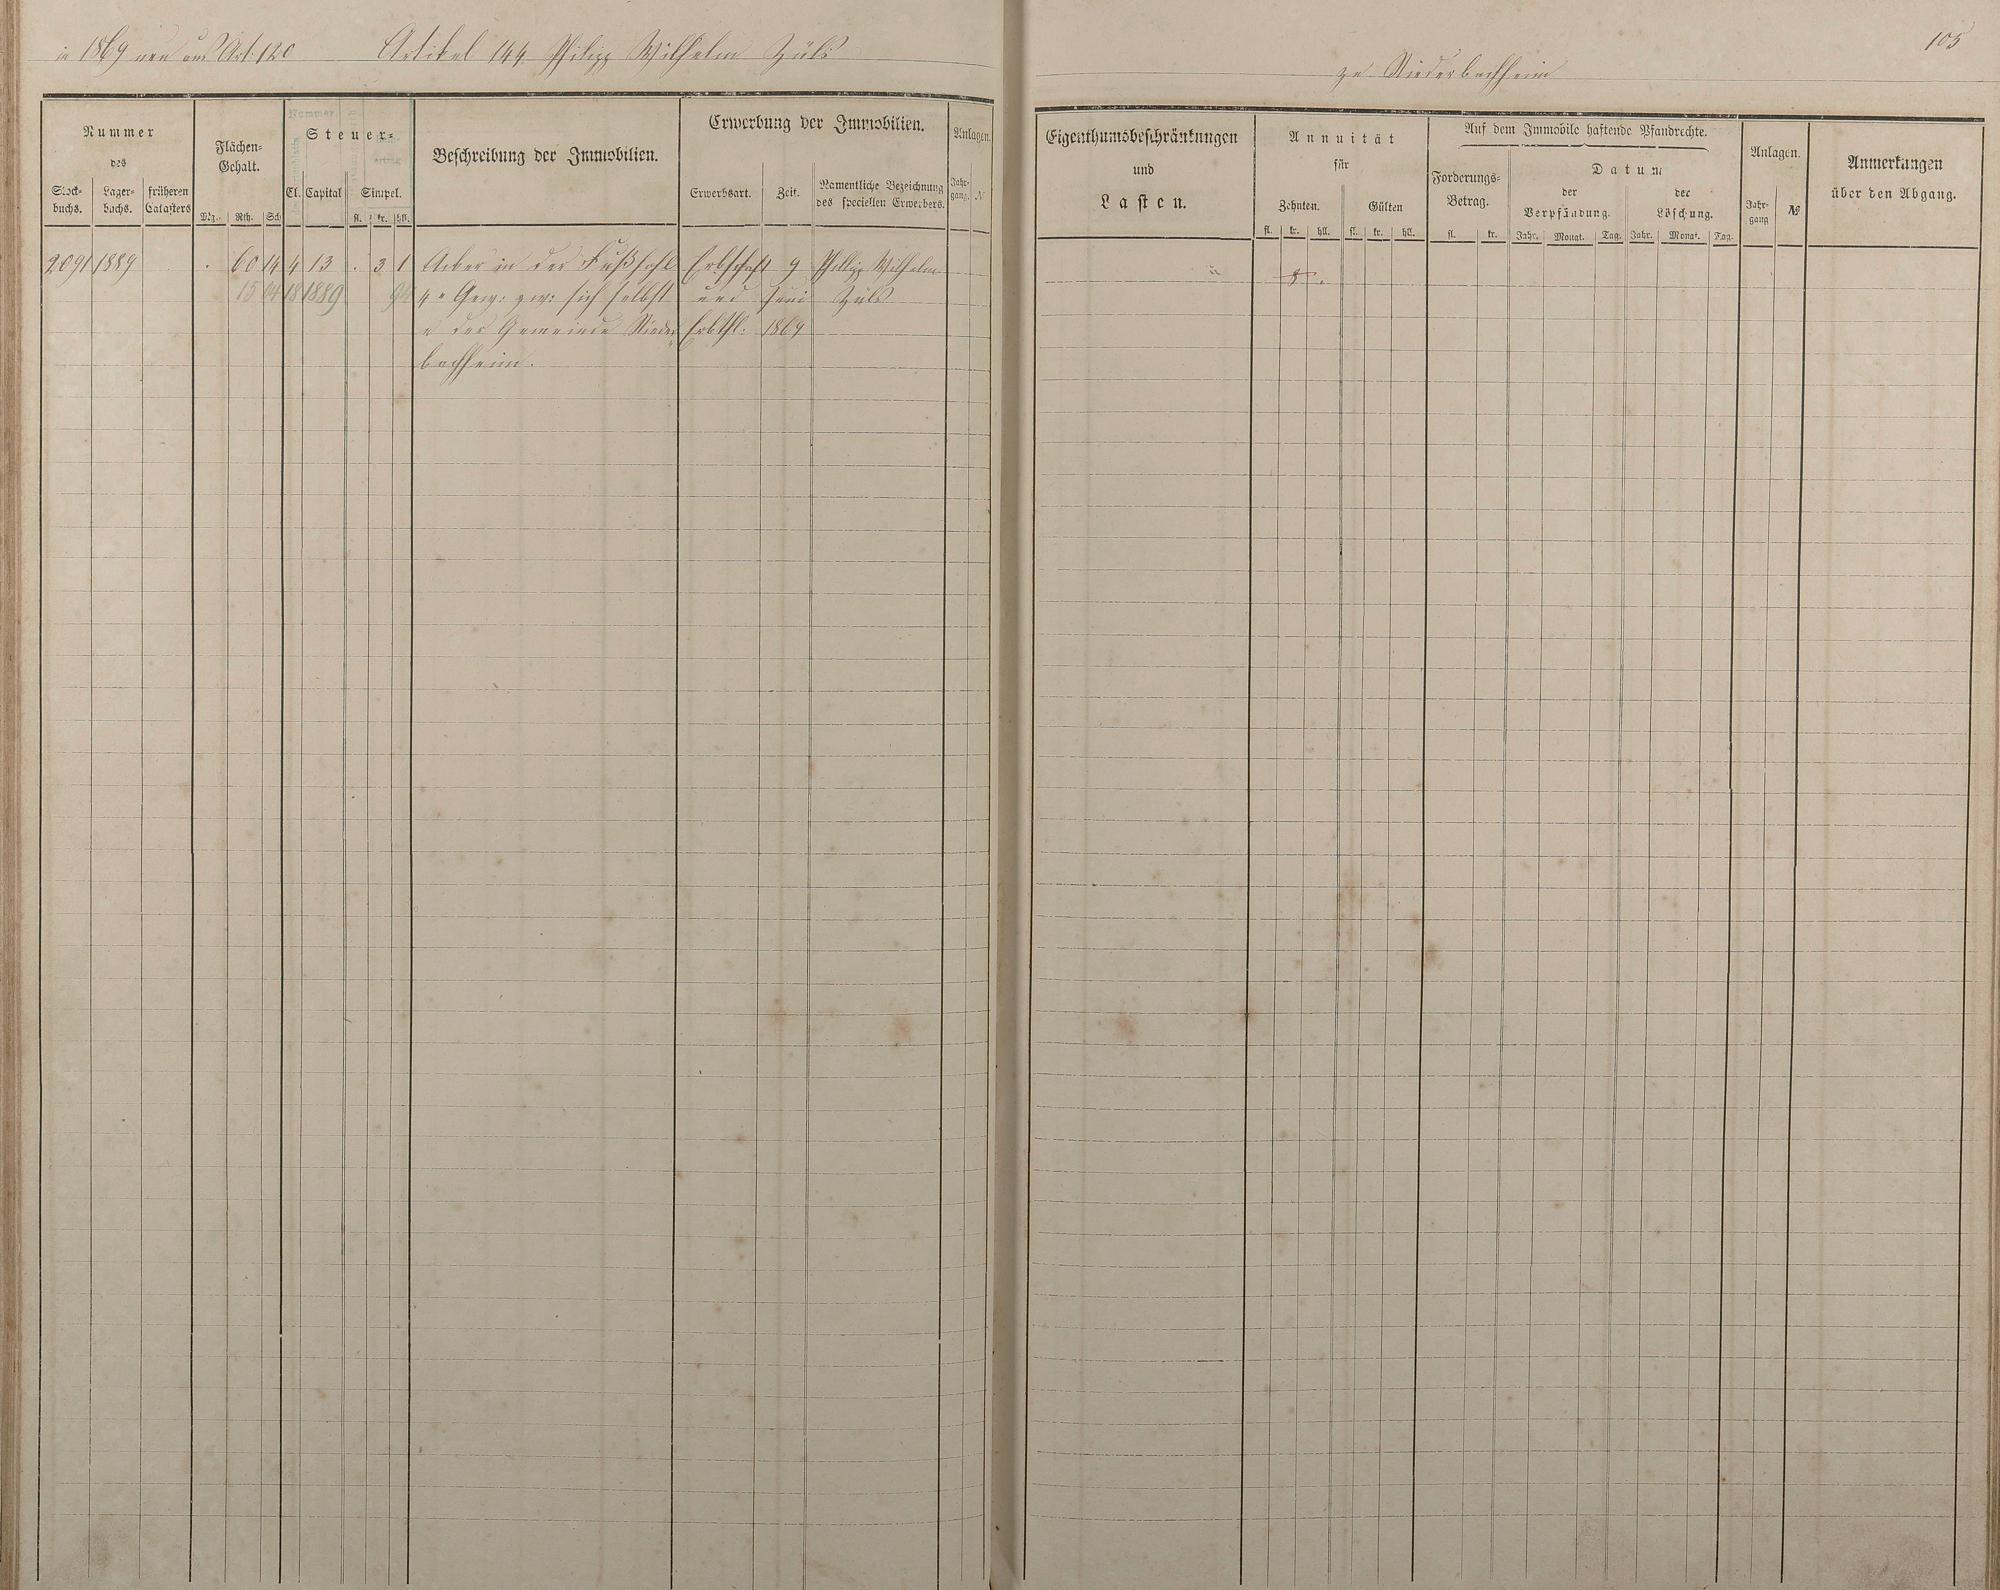 in 1869 neu aus Art. 120 Artikel 144. Philipp Wilhelm Züls
zu Niederbachheim
105
Nummer
des
Stock-
buchs.
Lager-
buchs.
früheren
Catasters
Flächen-
Gehalt.
Mg. Rth. Sch
Steuer-
Cl. Capital Simpel.
fl. kr. hll.
Beschreibung der Immobilien.
Erwerbung der Immobilien.
Erwerbsart. Zeit. Namentliche Bezeichnung
des speciellen Erwerbers.
Anlagen.
Jahr-
gang. N
Eigenthumsbeschränkungen
und
Lasten.
Annuität
für
Zehnten. Gülten
fl. kr. hll. fl. kr. hll.
Auf dem Immobile haftende Pfandrechte.
Forderungs-
Betrag.
fl. kr.
Datum
der
Verpfändung.
der
Löschung.
Jahr. Monat. Tag. Jahr. Monat. Tag.
Anlagen.
Jahr-
gang №
Anmerkungen
über den Abgang.
2091 1889 . . 60 14 4 13 . 3 1 Acker in der Fußsohl Erbschaft 9 Philipp Wilhelm 8 .
15 04 18 1889 94 4r Gew: zw: sich selbst und Juni Züls
u der Gemeinde Nieder Erbthl: 1869
bachheim.